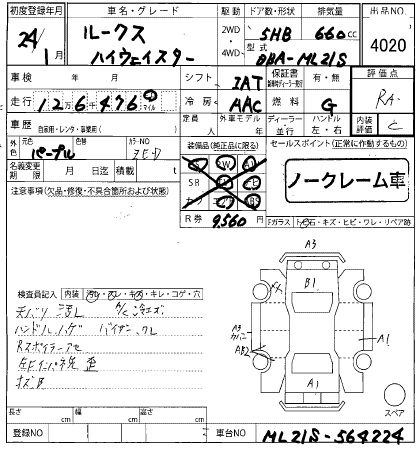 初度登録年月 車名・グレード 駆動 ドア数・形状 排気量 出品NO
24年 1月 ルークス ハイウェイスター
2WD・4WD 5HB 660cc
型式 DBA-ML21S
4020
車検 年 月 シフト IAT 保証書 有・無 評価点
走行 12万6千476 マイル 冷房 AAC 燃料 G RA
車歴 自家用・レンタ・事業用( ) 定員 人 外車モデル年 ディーラー・並行 ハンドル 左・右 内装評価 C
外色 元色 パープル 色替 カラーNO ZED
装備品(純正品に限る)
セールスポイント(正常に作動するもの)
名義変更期限 月 日迄 積載 t
SR
ノークレーム車
注意事項(欠品・修復・不具合箇所および状態)
R券 9,560円
Fガラス ト石・キズ・ヒビ・ワレ・リペア跡
A3
B1
A3
AB2
A1
A1
スペア
検査員記入 内装 汚れ・スレ・キズ・キレ・コゲ・穴
天バリ汚レ A/C冷エズ
ハンドルハゲ バイザークレ
Rスポイラーアセ
長さ cm 幅 cm 高さ cm
登録NO 車台NO ML21S-564224